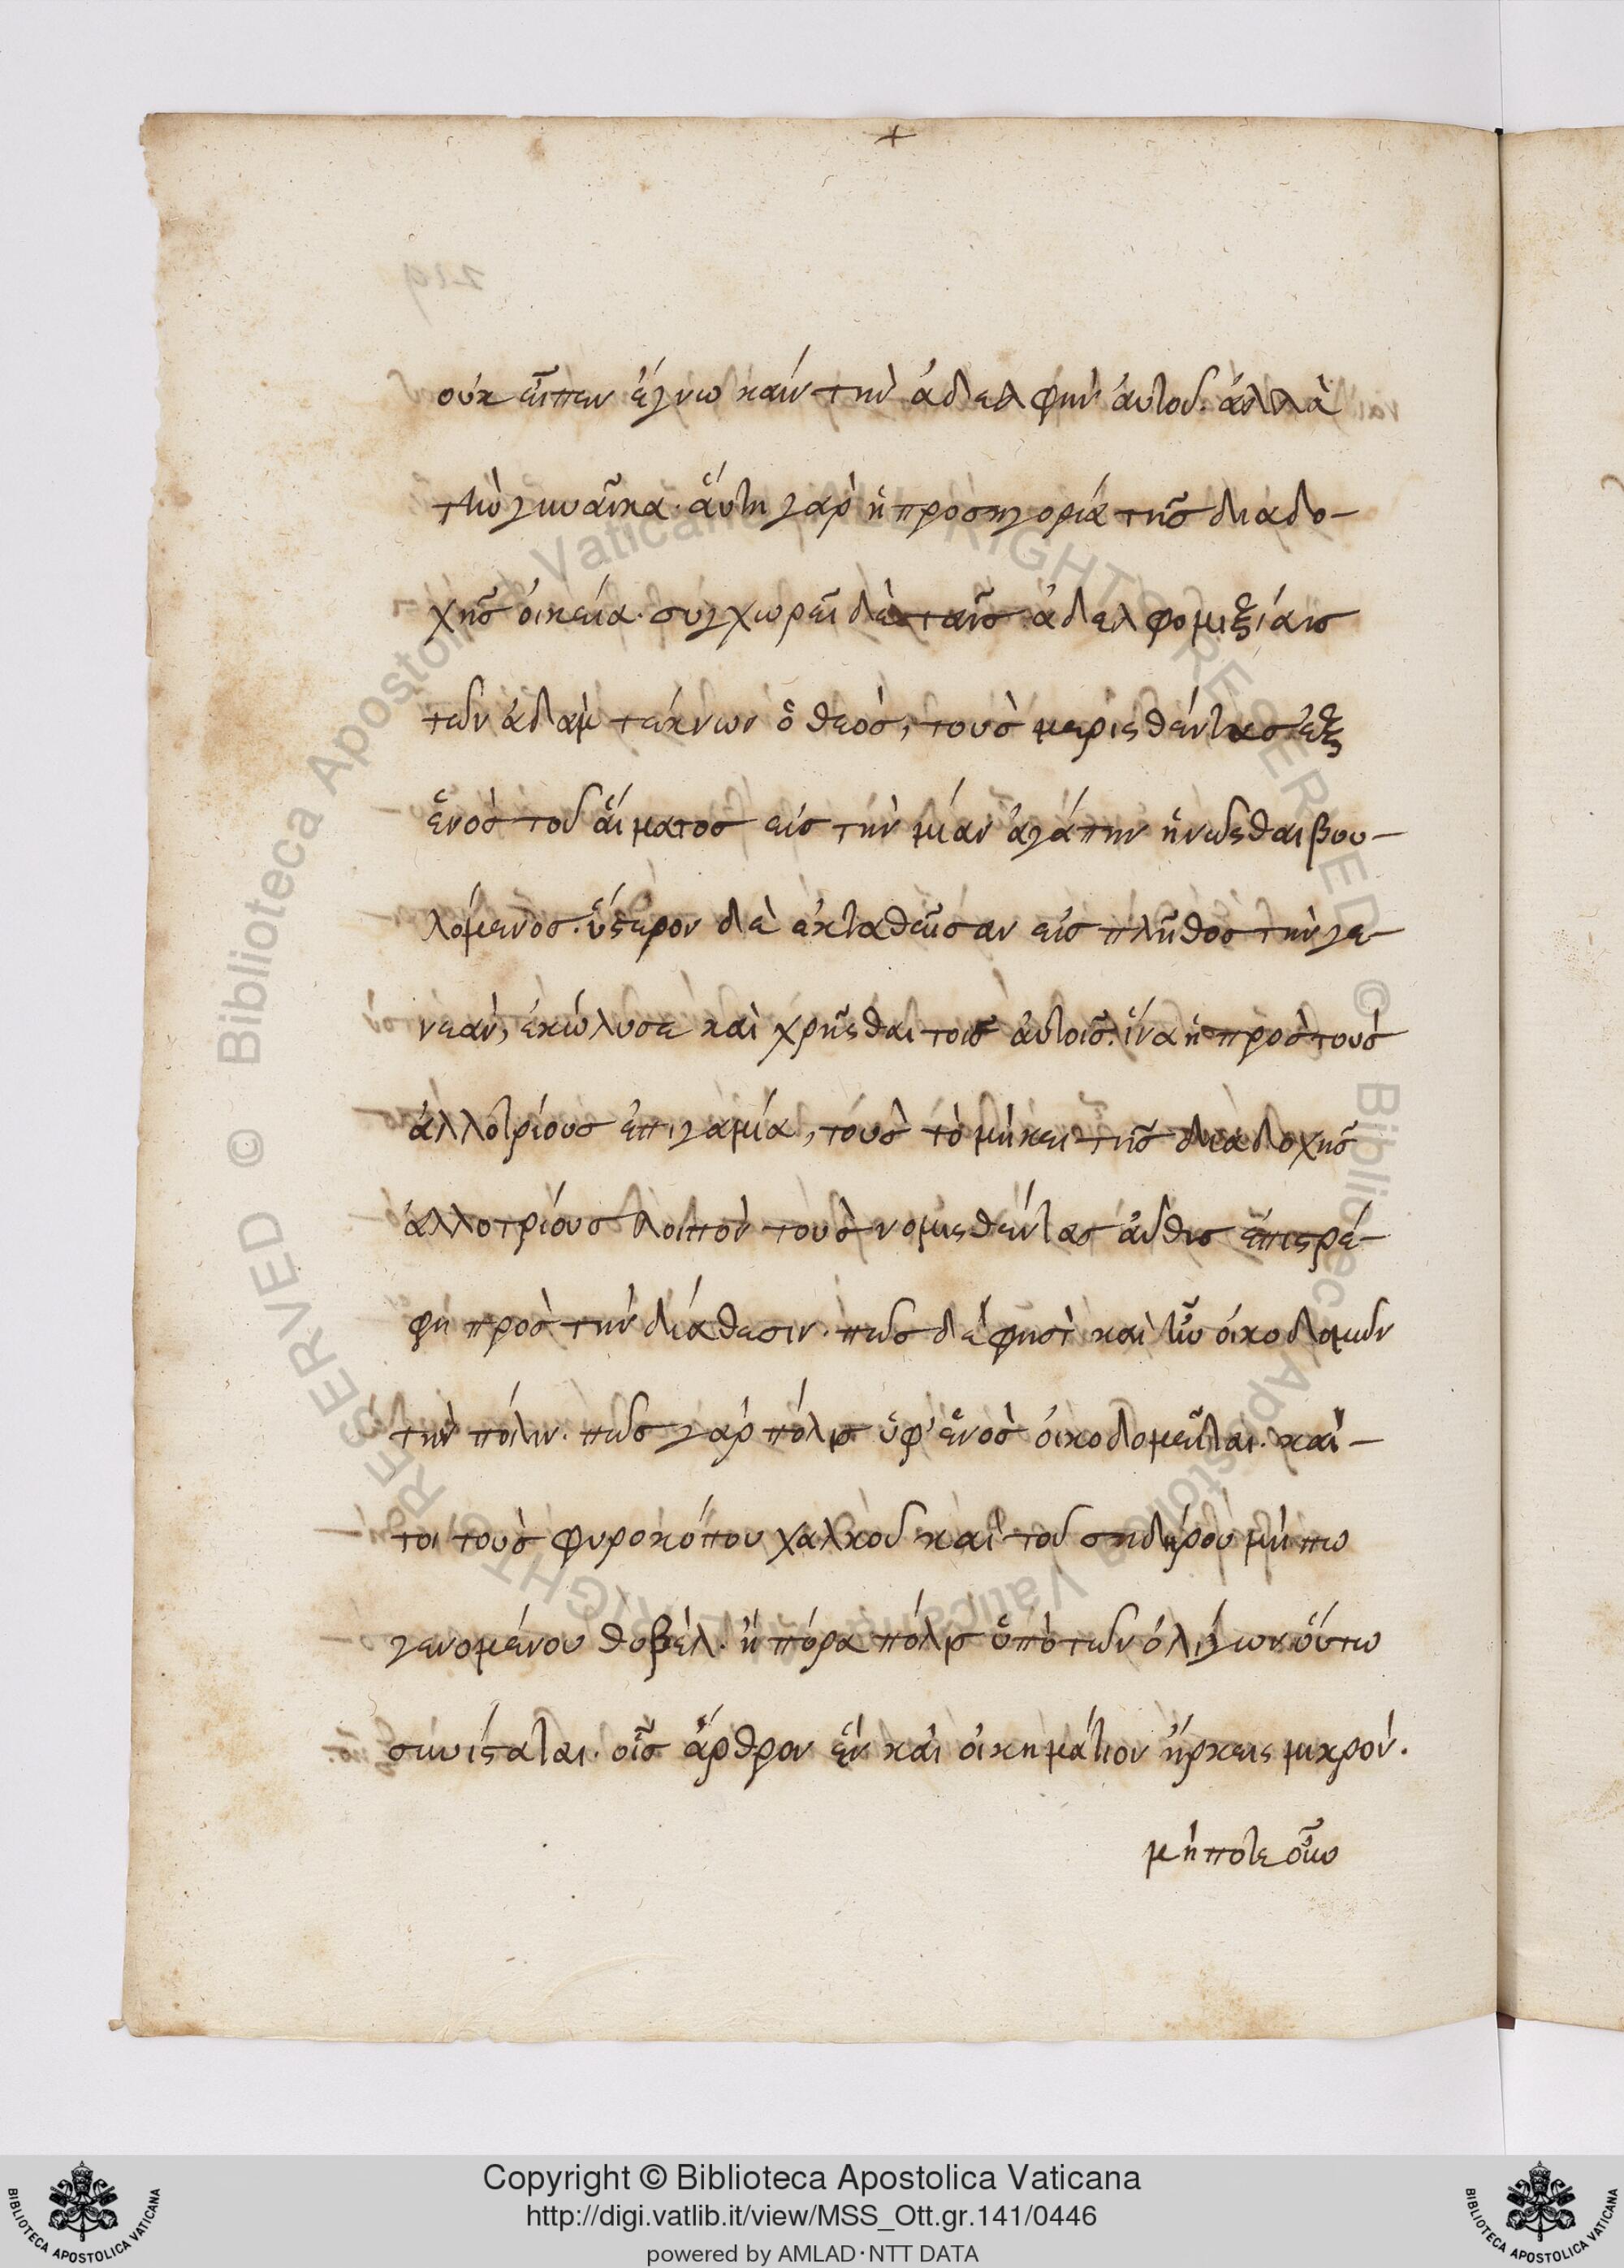 +
οὐκ εἶπεν ἔγνω κάϊν τὴν ἀδελφὴν ἀυτοῦ. ἀλλὰ
τὴν γυναῖκα. ἅυτη γὰρ ἡ προσηγορία τῆς διαδο-
χῆς ὀικεία. συγχωρεῖ δὲ ταῖς ἀδελφομιξίαις
τῶν ἀδὰμ τέκνων ὁ θεὸς, τοὺς μερισθέντας ἐξ
ἑνὸς τοῦ ἅιματος εἰς τὴν μίαν ἀγάπην ἡνῶσθαι βου-
λόμενος. ὕστερον δὲ ἐκταθεῖσαν εἰς πλῆθος τὴν γε-
νεὰν, ἐκώλυσε καὶ χρῆσθαι τοῖς ἀυτοῖς. ἵνα ἡ πρὸς τοὺς
ἀλλοτρίους ἐπιγαμία, τοὺς τὸ μήκει τῆς διαδοχῆς
ἀλλοτρίους λοιπὸν τοὺς νομισθέντας ἀῦθις ἐπιστρέ-
φη πρὸς τὴν διάθεσιν. πῶς δέ φησὶ καὶ ἦν ὀικοδομῶν
τὴν πόλιν. πῶς γὰρ πόλις ὑφ' ἑνὸς ὀικοδομεῖται. καὶ-
τοι τοὺς φυροκόπου χαλκοῦ καὶ τοῦ σιδήρου μήπω
γενομένου θοβέλ. ἢ πόρα πόλις ὑπὸ τῶν ὀλίγων όυτω
συνίσταται. οἷς ἄρθρον ἓν καὶ ὀικημάτιον ἤρκεις μικρόν.
μήποτε οὖν
Copyright © Biblioteca Apostolica Vaticana
http://digi.vatlib.it/view/MSS_Ott.gr.141/0446
powered by AMLAD·NTT DATA